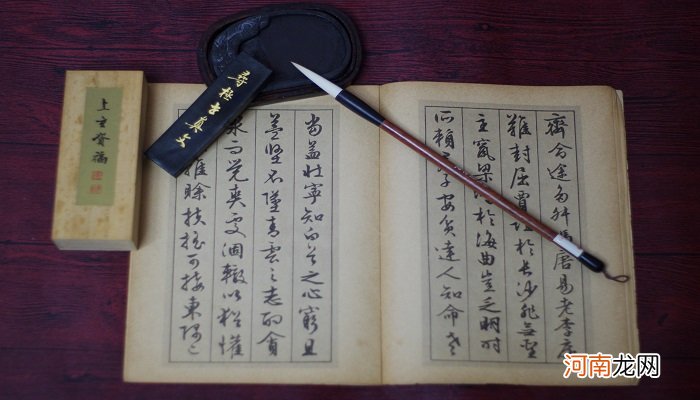 齊命途多舛馮唐易老李廣
難封屈賈誼於長沙非無聖
主竄梁於海曲豈乏明時
所賴子安貧達人知命老
當益壯寧知白首之心窮且
益堅不墜青雲之志酌貪
泉而覺爽處涸轍以猶懽
雖賒扶搖可接東隅已
尋極玄真
上福
河南龙网